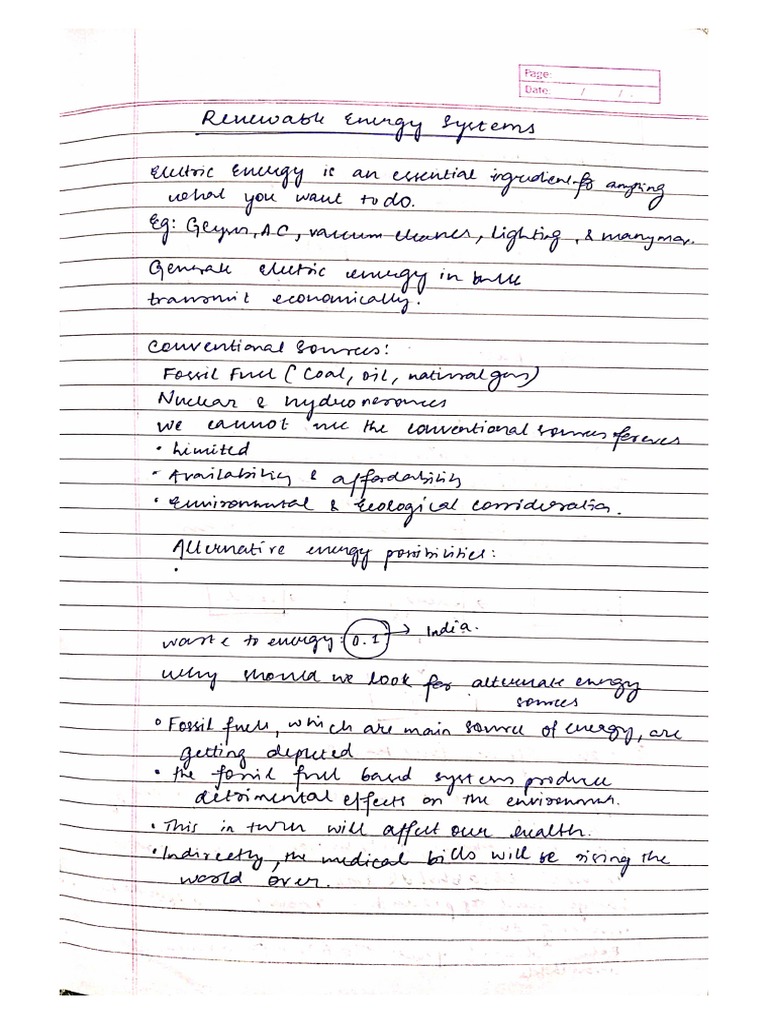 Page:
Date: / / .
Renewable Energy Systems
Electric Energy is an essential ingredient for anything
what you want to do.
Eg: Geyser, AC, vacuum cleaner, lighting, & many more.
Generate electric energy in bulk
transmit economically.
Conventional Sources:
Fossil Fuel (Coal, oil, natural gas)
Nuclear & hydro resources
We cannot use the conventional sources forever
• Limited
• Availability & affordability
• Environmental & Ecological consideration.
Alternative energy possibilities:
•
waste to energy: 0.1 → India.
Why should we look for alternate energy
sources
• Fossil fuels, which are main source of energy, are
getting depleted
• the fossil fuel based systems produce
detrimental effects on the environment.
• This in turn will affect our health.
• Indirectly, the medical bills will be rising the
world over.